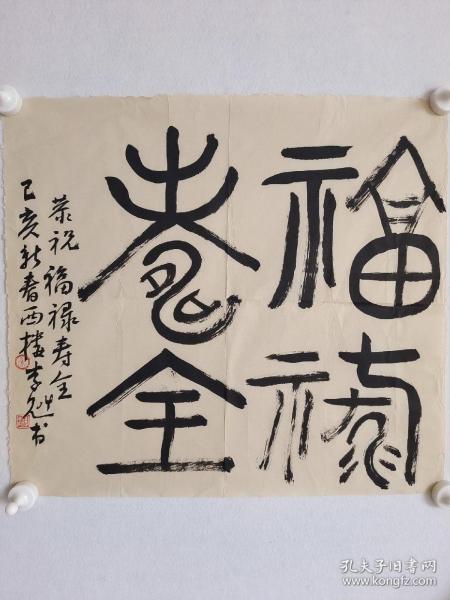 福禄
寿全
恭祝福禄寿全
己亥新春西楼书
孔夫子旧书网
www.kongfz.com